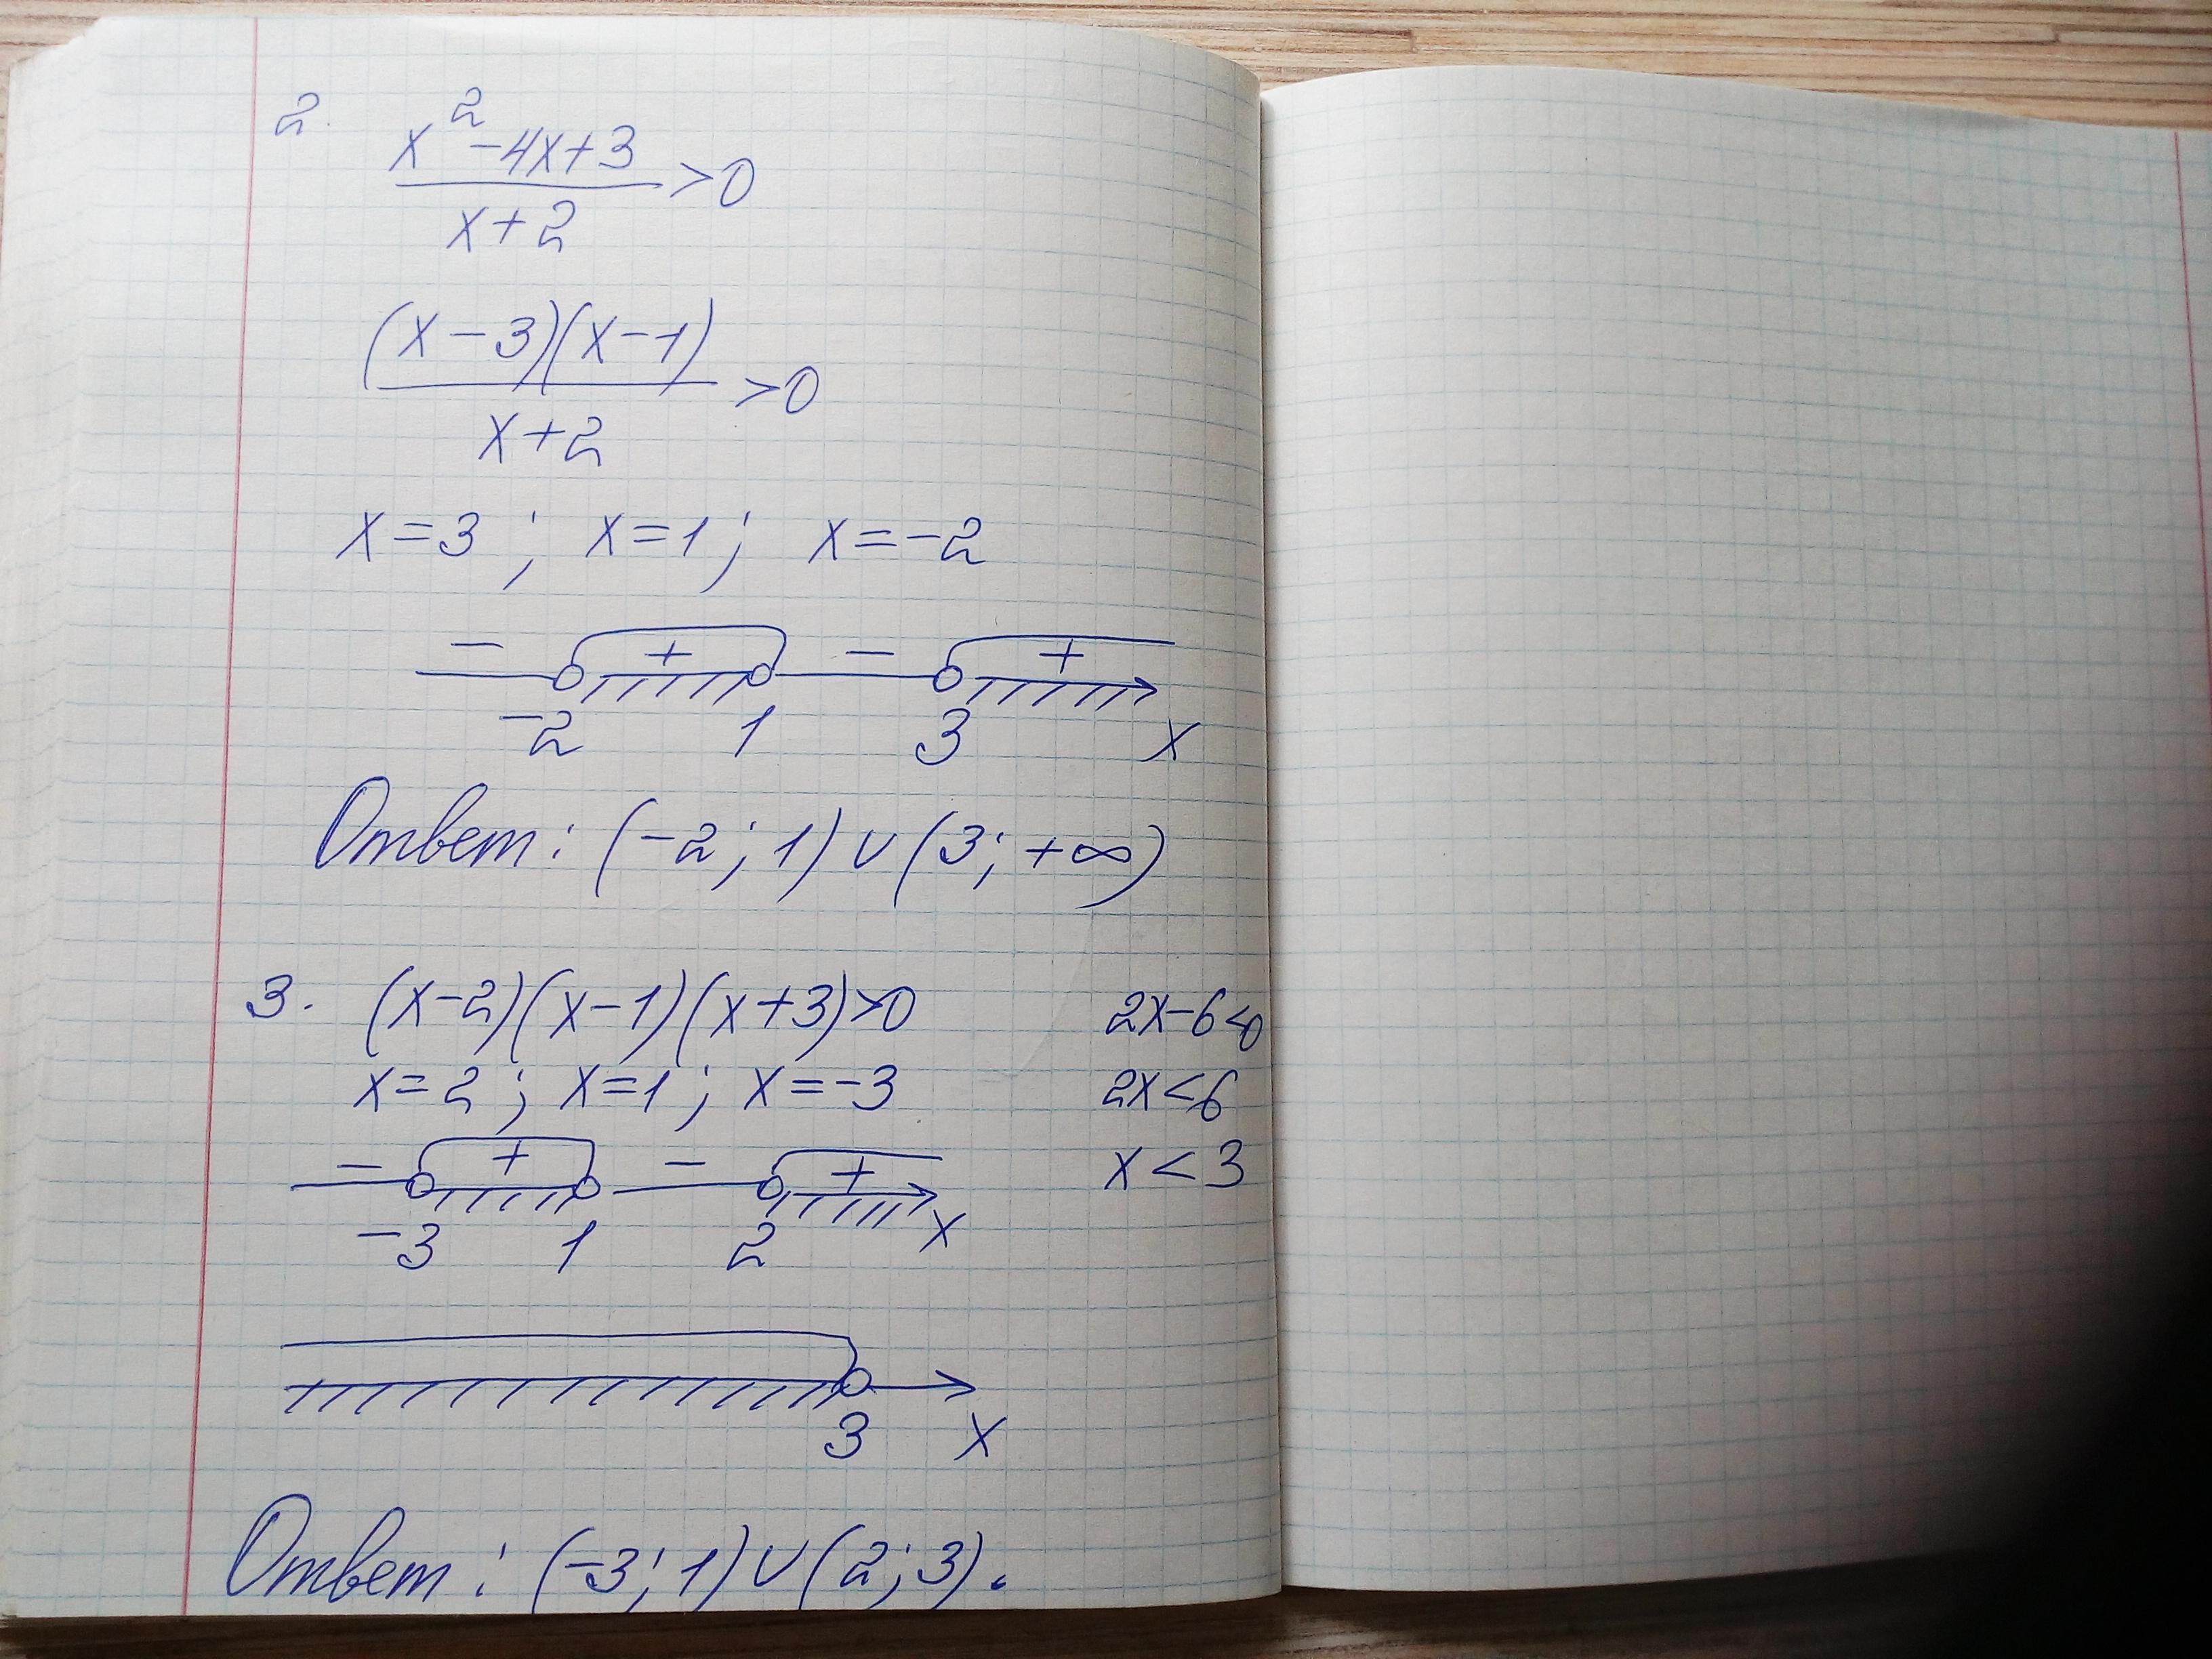 2. (x²-4x+3)/(x+2) >0
((x-3)(x-1))/(x+2) >0
x=3 ; x=1 ; x=-2
- + - +
-2 1 3 x
Ответ: (-2; 1) ∪ (3; +∞)
3. (x-2)(x-1)(x+3)>0 2x-6<0
x=2 ; x=1 ; x=-3 2x<6
- + - + x<3
-3 1 2 x
3 x
Ответ: (-3; 1) ∪ (2; 3).